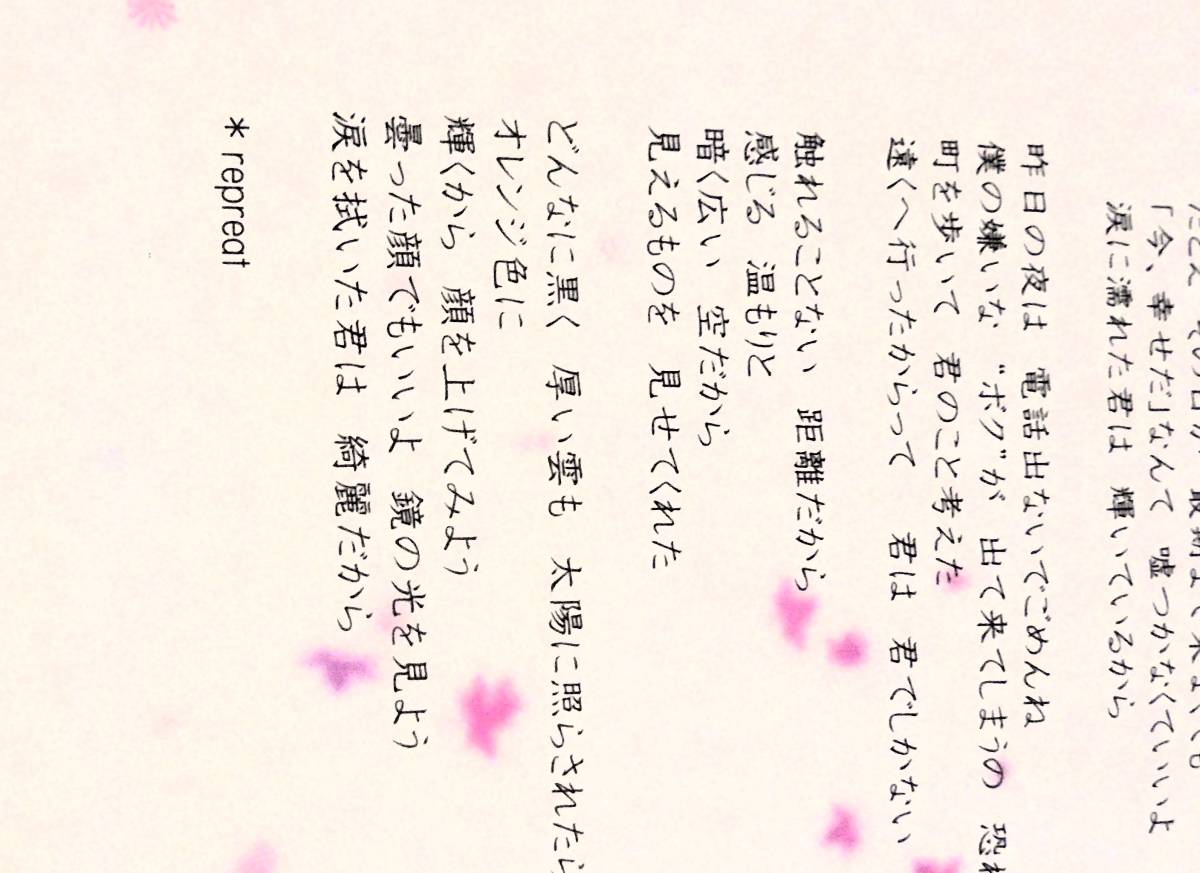 「今、幸せだ」なんて　嘘つかなくていいよ
涙に濡れた君は　輝いているから
昨日の夜は　電話出ないでごめんね
僕の嫌いな　“ボク”が　出て来てしまうの　恐れ
町を歩いて　君のこと考えた
遠くへ行ったからって　君は　君でしかない
触れることない　距離だから
感じる　温もりと
暗く広い　空だから
見えるものを　見せてくれた
どんなに黒く　厚い雲も　太陽に照らされたら
オレンジ色に
輝くから　顔を上げてみよう
曇った顔でもいいよ　鏡の光を見よう
涙を拭いた君は　綺麗だから
* repreat